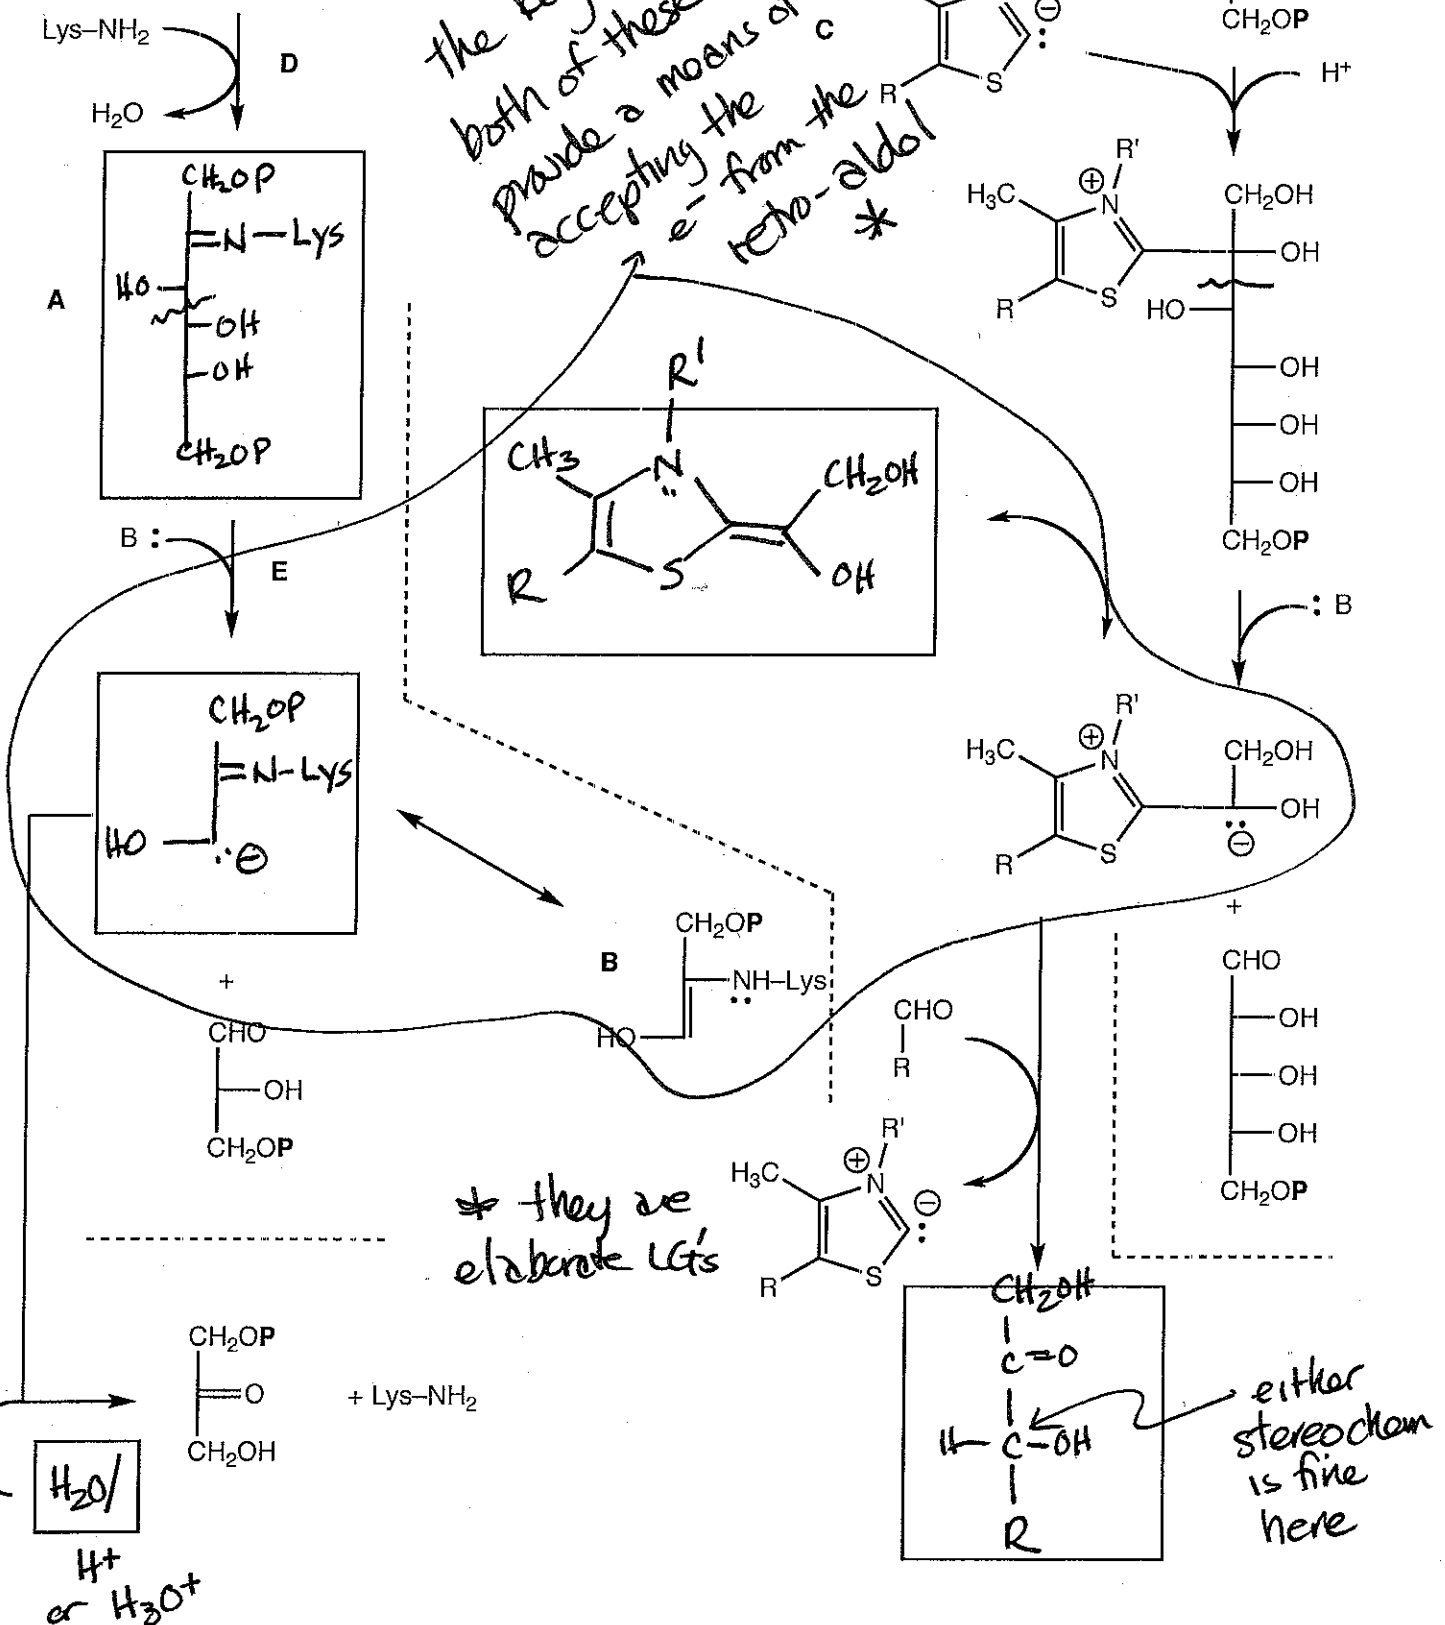 Lys–NH₂
H₂O
D
the
both of these
provide a means of
accepting the
e⁻ from the
retro-aldol
*
C
⊖
:
S
R
CH₂OP
H⁺
A
CH₂OP
=N–Lys
HO
OH
OH
CH₂OP
R'
⊕
H₃C
N
CH₂OH
OH
R
S
HO
OH
OH
OH
CH₂OP
R'
CH₃
N
CH₂OH
R
S
OH
B :
E
: B
CH₂OP
=N–Lys
HO
: ⊖
R'
⊕
H₃C
N
CH₂OH
OH
R
S
⊖
+
B
CH₂OP
NH–Lys
HO
+
CHO
OH
CH₂OP
CHO
R
CHO
OH
OH
OH
CH₂OP
* they are
elaborate LG's
R'
⊕
H₃C
N
⊖
:
R
S
CH₂OP
O
CH₂OH
+ Lys–NH₂
H₂O/
H+
or H₃O+
CH₂OH
C=O
H–C–OH
R
either
stereochem
is fine
here